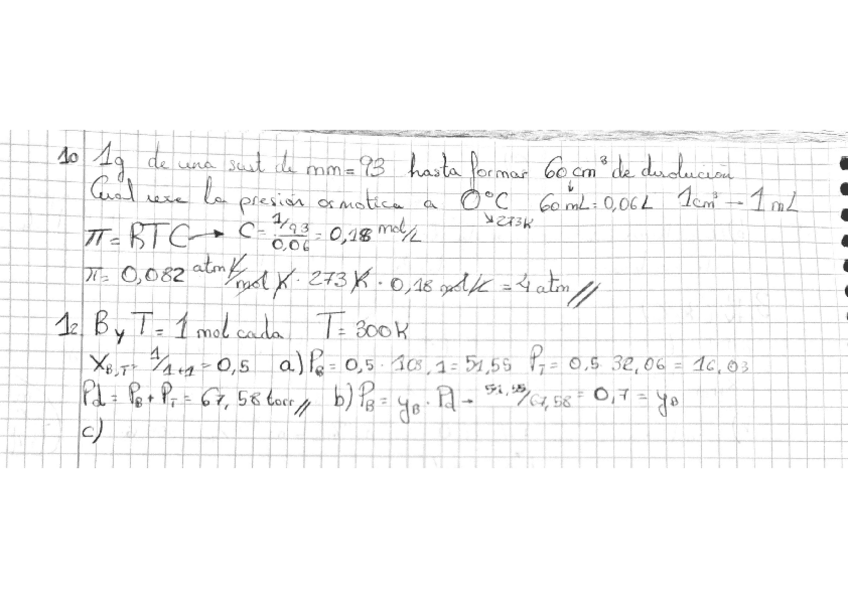 10 1g de una sust de mm=93 hasta formar 60 cm³ de disolucion
Cual sera la presión osmotica a 0°C 60mL=0,06L 1cm³ → 1mL
↘273K
π = RTC → C = 1/93 / 0,06 = 0,18 mol/L
π = 0,082 atm L/mol K · 273 K · 0,18 mol/L = 4 atm //
12 B y T = 1 mol cada T = 300K
X_B,T = 1/1+1 = 0,5 a) P_B = 0,5 · 103,1 = 51,55 P_T = 0,5 · 32,06 = 16,03
Pd = P_B + P_T = 67,58 torr // b) P_B = y_B · Pd → 51,55/67,58 = 0,7 = y_B
c)